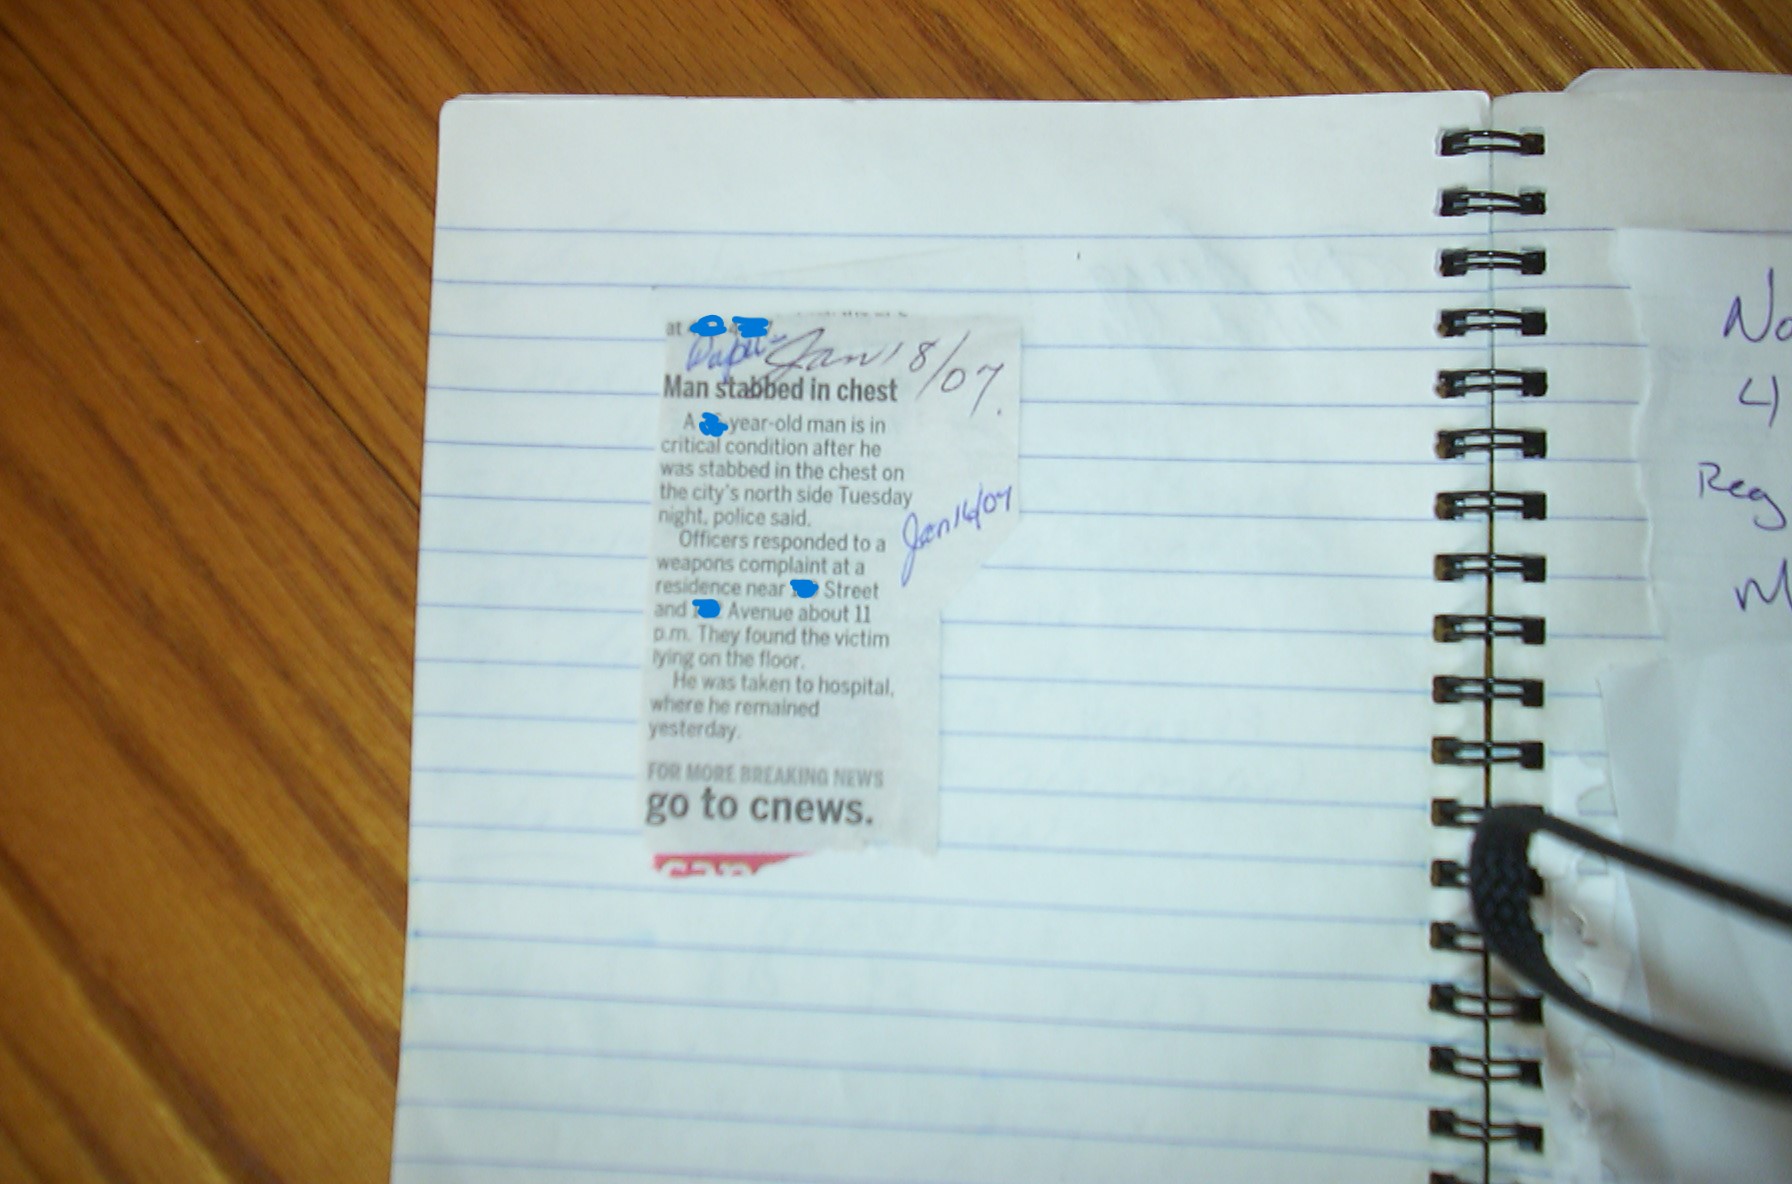 at
Paper Jan 18/07.
Man stabbed in chest
A year-old man is in
critical condition after he
was stabbed in the chest on
the city's north side Tuesday
night, police said.
Jan 16/07
Officers responded to a
weapons complaint at a
residence near Street
and Avenue about 11
p.m. They found the victim
lying on the floor.
He was taken to hospital,
where he remained
yesterday.
FOR MORE BREAKING NEWS
go to cnews.
No
4
Reg
M